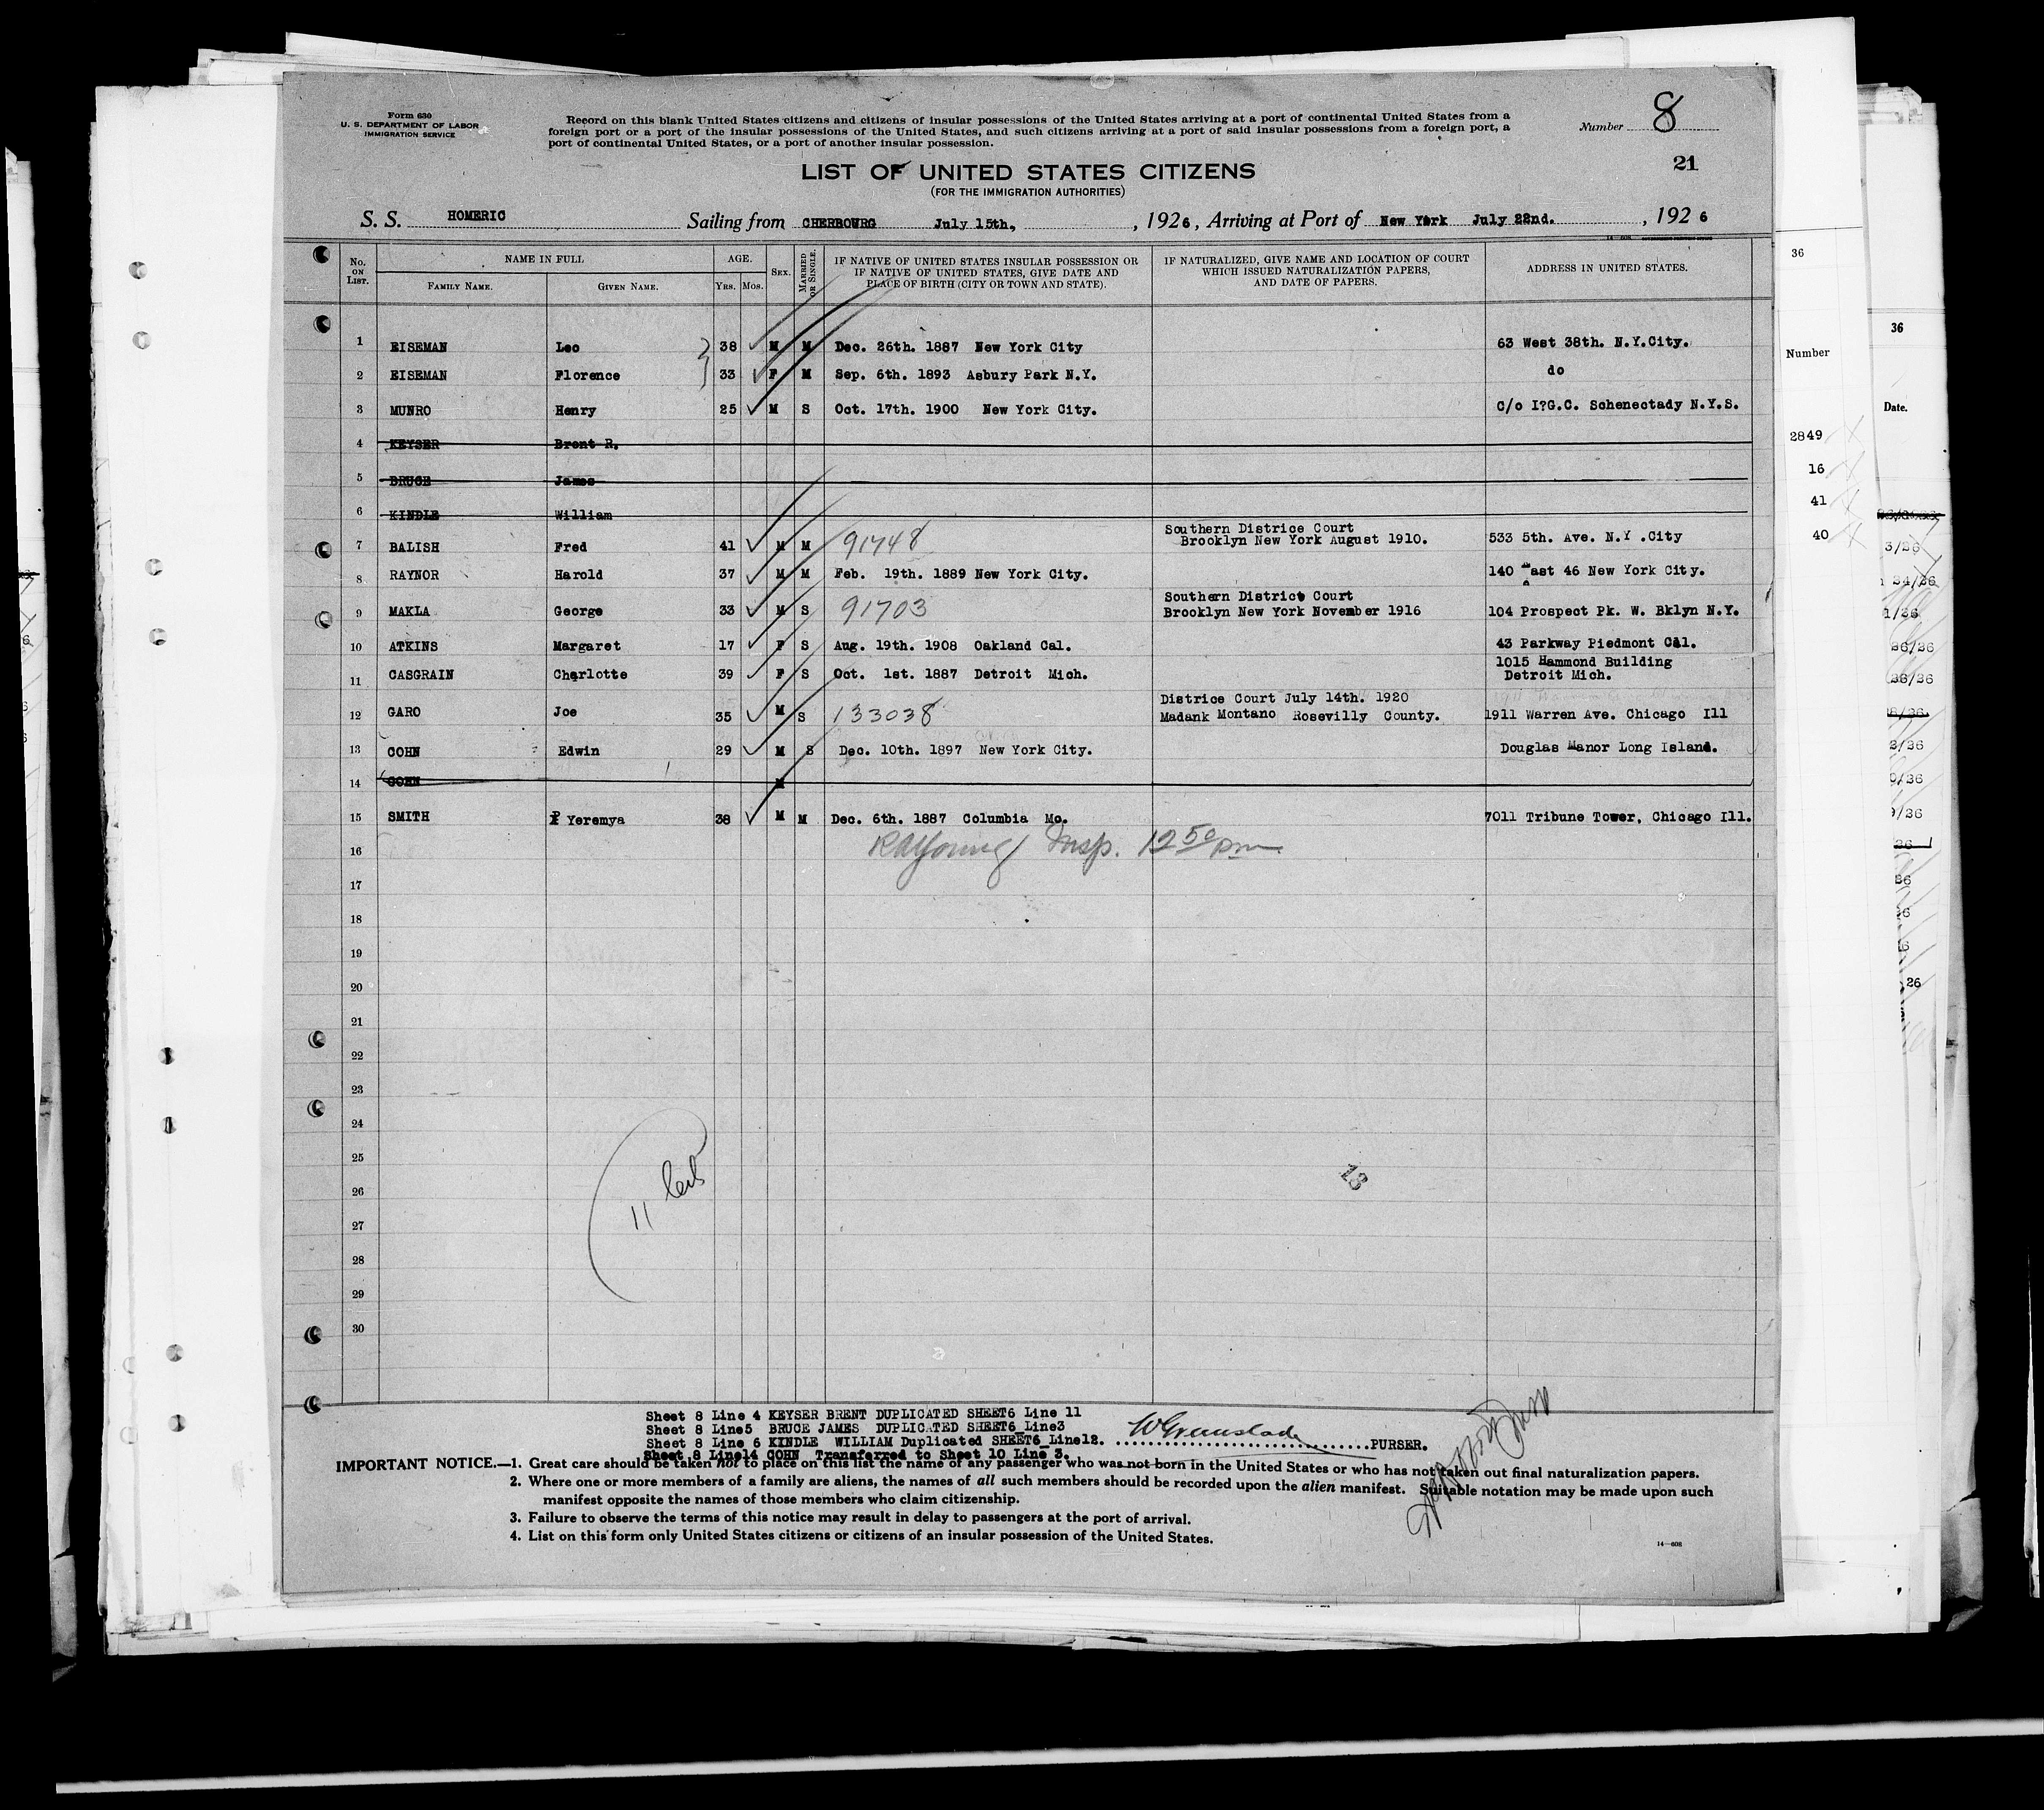 Form 630
U. S. DEPARTMENT OF LABOR
IMMIGRATION SERVICE
Record on this blank United States citizens and citizens of insular possessions of the United States arriving at a port of continental United States from a
foreign port or a port of the insular possessions of the United States, and such citizens arriving at a port of said insular possessions from a foreign port, a
port of continental United States, or a port of another insular possession.
Number 8
21
LIST OF UNITED STATES CITIZENS
(FOR THE IMMIGRATION AUTHORITIES)
S. S. HOMERIC Sailing from CHERBOURG July 15th, , 1926, Arriving at Port of New York July 22nd. , 1926
No. ON LIST. NAME IN FULL FAMILY NAME. GIVEN NAME. AGE. YRS. MOS. SEX. MARRIED OR SINGLE. IF NATIVE OF UNITED STATES INSULAR POSSESSION OR IF NATIVE OF UNITED STATES, GIVE DATE AND PLACE OF BIRTH (CITY OR TOWN AND STATE). IF NATURALIZED, GIVE NAME AND LOCATION OF COURT WHICH ISSUED NATURALIZATION PAPERS, AND DATE OF PAPERS. ADDRESS IN UNITED STATES.
1 EISEMAN Leo 38 M M Dec. 26th. 1887 New York City 63 West 38th. N.Y.City.
2 EISEMAN Florence 33 F M Sep. 6th. 1893 Asbury Park N.Y. do
3 MUNRO Henry 25 M S Oct. 17th. 1900 New York City. C/o I?G.C. Schenectady N.Y.S.
4 KEYSER Brent R.
5 BRUCE James
6 KINDLE William
7 BALISH Fred 41 M M 91748 Southern Districe Court Brooklyn New York August 1910. 533 5th. Ave. N.Y .City
8 RAYNOR Harold 37 M M Feb. 19th. 1889 New York City. 140 East 46 New York City.
9 MAKLA George 33 M S 91703 Southern District Court Brooklyn New York November 1916 104 Prospect Pk. W. Bklyn N.Y.
10 ATKINS Margaret 17 F S Aug. 19th. 1908 Oakland Cal. 43 Parkway Piedmont Cal.
11 CASGRAIN Charlotte 39 F S Oct. 1st. 1887 Detroit Mich. 1015 Hammond Building Detroit Mich.
12 GARO Joe 35 M S 133038 Districe Court July 14th. 1920 Madank Montano Rosevilly County. 1911 Warren Ave. Chicago Ill
13 COHN Edwin 29 M S Dec. 10th. 1897 New York City. Douglas Manor Long Island.
14 COHN M
15 SMITH P Yeremya 38 M M Dec. 6th. 1887 Columbia Mo. 7011 Tribune Tower, Chicago Ill.
16 RAYoung Insp. 12 50 pm
17
18
19
20
21
22
23
24
25
26
27
28
29
30
11
18
Sheet 8 Line 4 KEYSER BRENT DUPLICATED SHEET6 Line 11
Sheet 8 Line5 BRUCE JAMES DUPLICATED SHEET6 Line3
Sheet 8 Line 6 KINDLE WILLIAM Duplicated SHEET6 Line12.
Sheet 8 Line14 COHN Transferred to Sheet 10 Line 3.
PURSER.
IMPORTANT NOTICE.—1. Great care should be taken not to place on this list the name of any passenger who was not born in the United States or who has not taken out final naturalization papers.
2. Where one or more members of a family are aliens, the names of all such members should be recorded upon the alien manifest. Suitable notation may be made upon such
manifest opposite the names of those members who claim citizenship.
3. Failure to observe the terms of this notice may result in delay to passengers at the port of arrival.
4. List on this form only United States citizens or citizens of an insular possession of the United States.
14—608
36
Number
2849
16
41
40
36
Date.
3/26
24/26
1/26
26/26
28/26
2/26
0/26
9/26
26